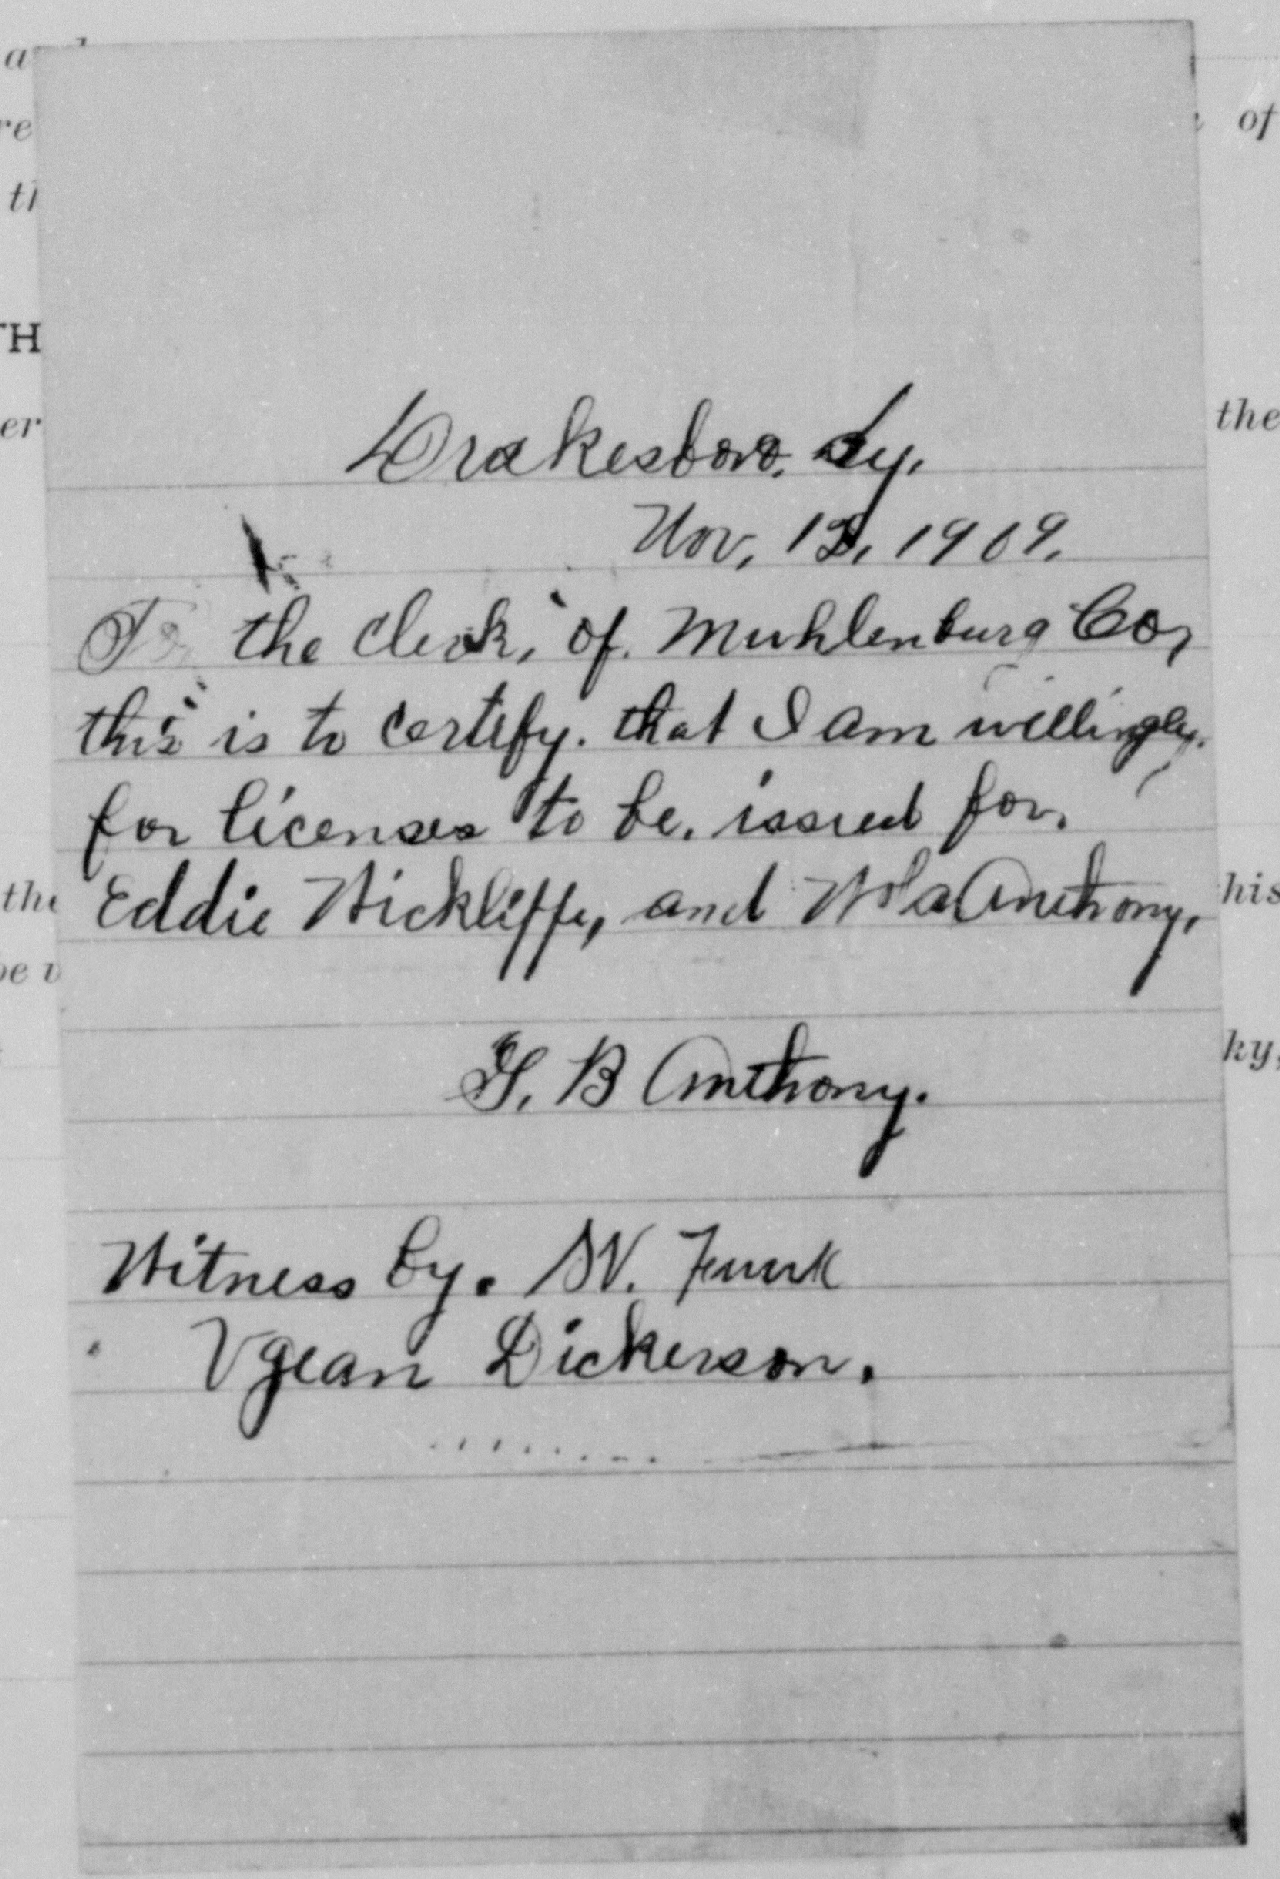 a
re of
th
TH
er the
Drakesboro. Ky.
Nov, 12, 1909.
To the Clerk, of. Muhlenburg Co,
this is to certify. that I am willingly.
for licenses to be. issued for.
the Eddie Wickliffe, and Anthony, his
be
G. B Anthony. ky,
Witness by. W. Funk
Vgean Dickerson.